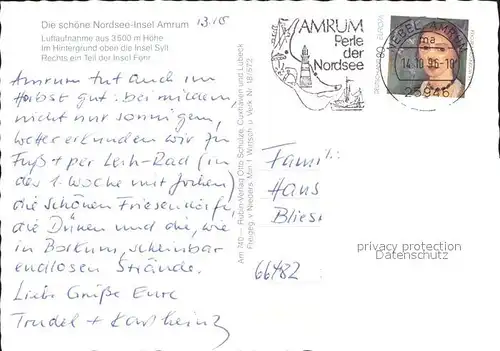 Die schöne Nordsee-Insel Amrum 13.10
Luftaufnahme aus 3500 m Höhe
Im Hintergrund oben die Insel Sylt
Rechts ein Teil der Insel Föhr
Amrum tut auch im
Herbst gut: bei mildem,
nicht nur sonnigem,
Wetter erkunden wir zu
Fuß + per Leih-Rad (in
der 1. Woche mit Jochen)
die schönen Friesendörfer,
die Dünen und die, wie
in Borkum, scheinbar
endlosen Strände.
Liebe Grüße Eure
Trudel + Karlheinz
Am 740 — Rubin-Verlag Otto Schulze, Cuxhaven und Lübeck
Freigeg. v. Nieders. Min. f. Wirtsch. u. Verk. Nr. 18/572
AMRUM
Perle
der
Nordsee
EUROPA
80
NEBEL, AMRUM
ma
14.10.96-10
25946
Famil
Hans
Blies
66482
privacy protection
watermark for DSGVO